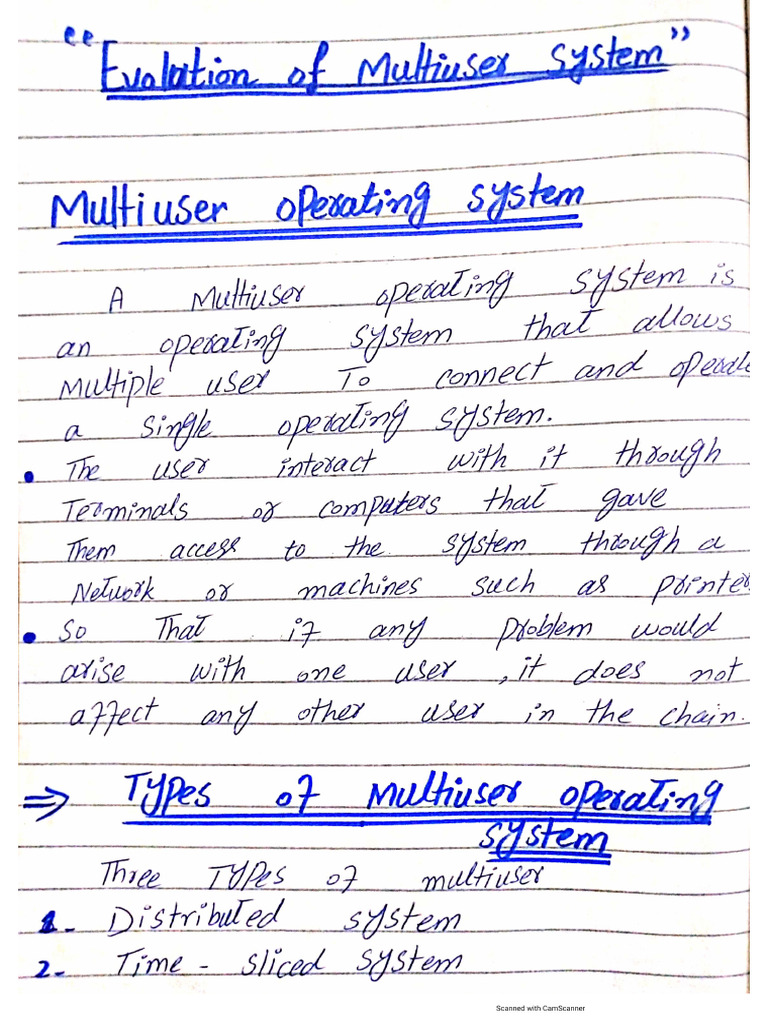 "Evolution of Multiuser System"
Multiuser operating system
A Multiuser operating system is
an operating system that allows
Multiple user To connect and operate
a single operating system.
• The user interact with it through
Terminals or computers that gave
Them access to the system through a
Network or machines such as printer
• So That if any problem would
arise with one user, it does not
affect any other user in the chain.
⇒ Types of Multiuser operating
system
Three Types of multiuser
1- Distributed system
2- Time - sliced system
Scanned with CamScanner